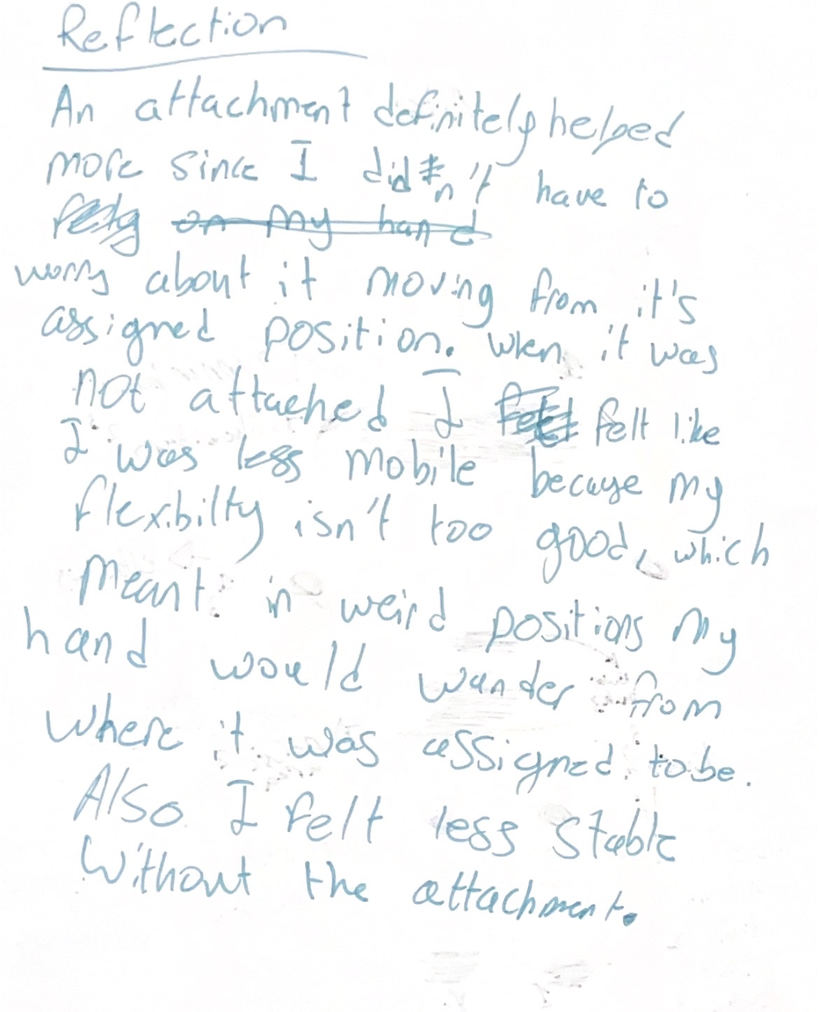 Reflection
An attachment definitely helped
more since I didn't have to
on my hand
worry about it moving from it's
assigned position. when it was
not attached I felt like
I was less mobile becauye my
flexibilty isn't too good, which
meant in weird positions my
hand would wander from
where it was assigned to be.
Also I felt less stable
without the attachment.